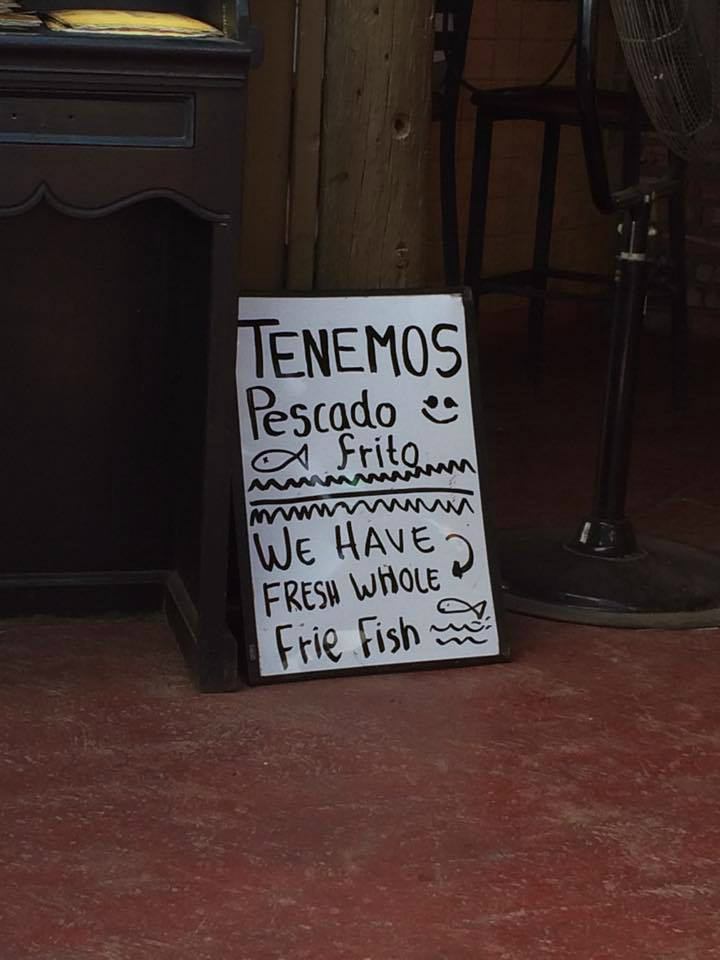 TENEMOS
Pescado
frito
WE HAVE
FRESH WHOLE
Frie Fish